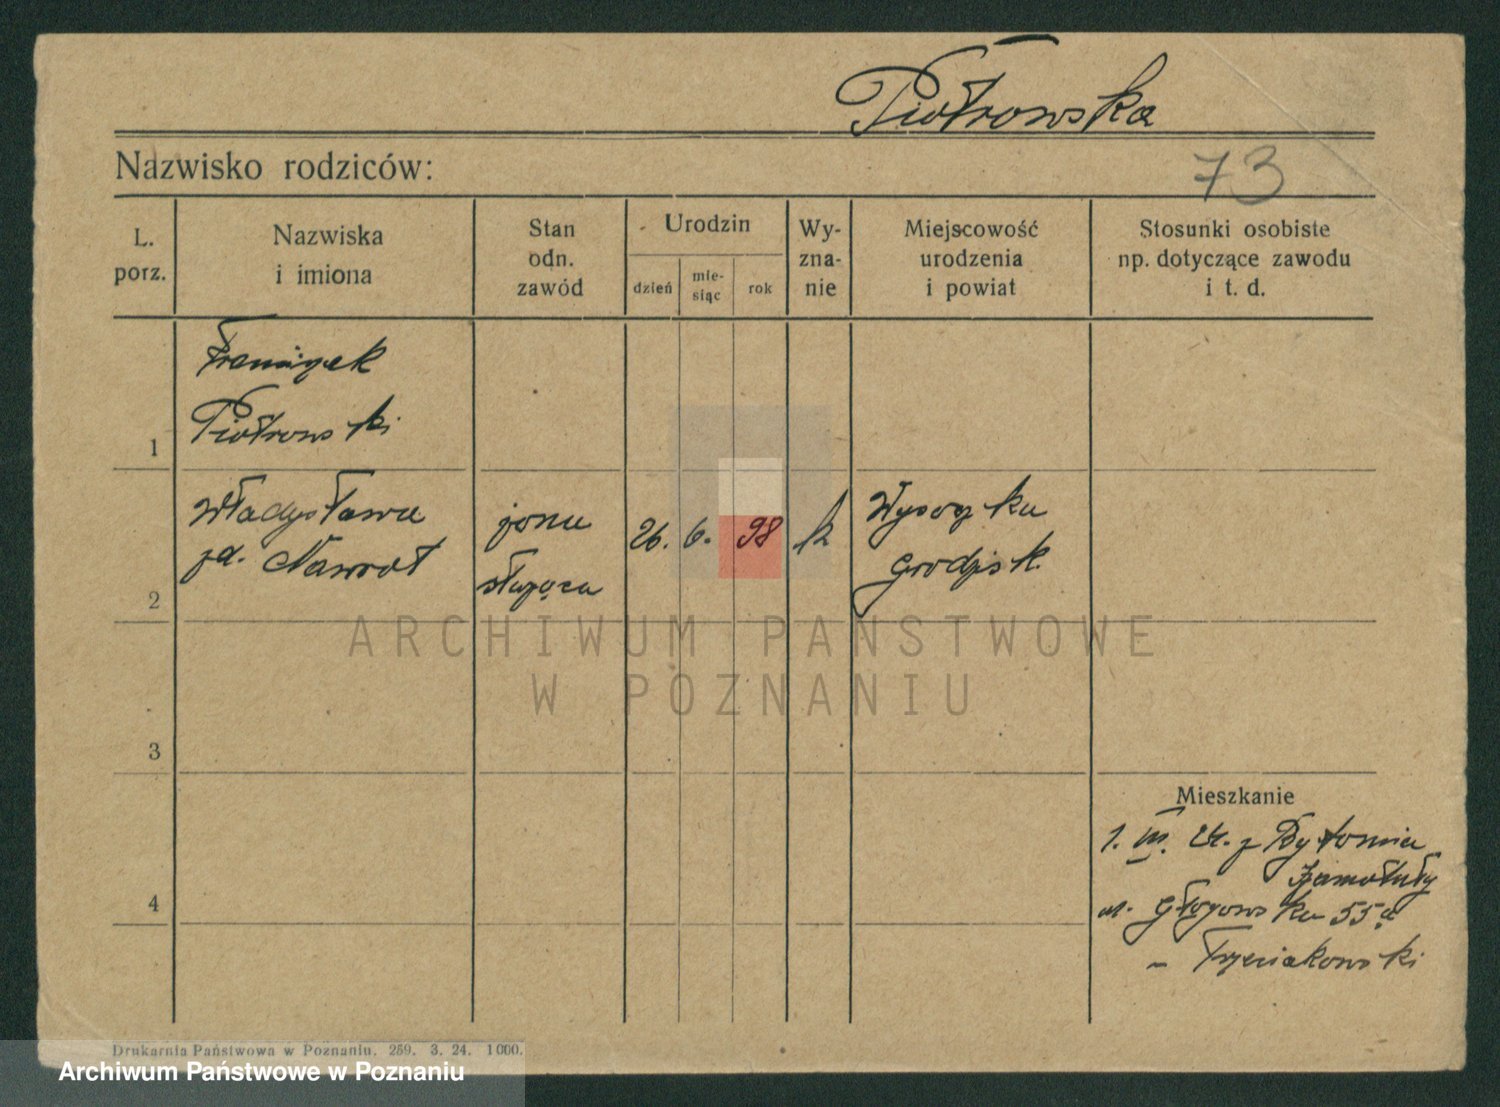 Piotrowska
Nazwisko rodziców:
73
L. porz.
Nazwiska i imiona
Stan odn. zawód
Urodzin
dzień
mie-siąc
rok
Wy-zna-nie
Miejscowość urodzenia i powiat
Stosunki osobiste np. dotyczące zawodu i t. d.
Franciszek
Piotrowski
1
Władysława
zd. Nawrot
żona
służąca
26. 6. 98
k
Wysoczka
Grodzisk
2
ARCHIWUM PAŃSTWOWE
W POZNANIU
3
Mieszkanie
1. III. z Bytomia
Szamotuły
4
ul. Głogowska 55a
– Trzeciakowski
Drukarnia Państwowa w Poznaniu. 259. 3. 24. 1000.
Archiwum Państwowe w Poznaniu